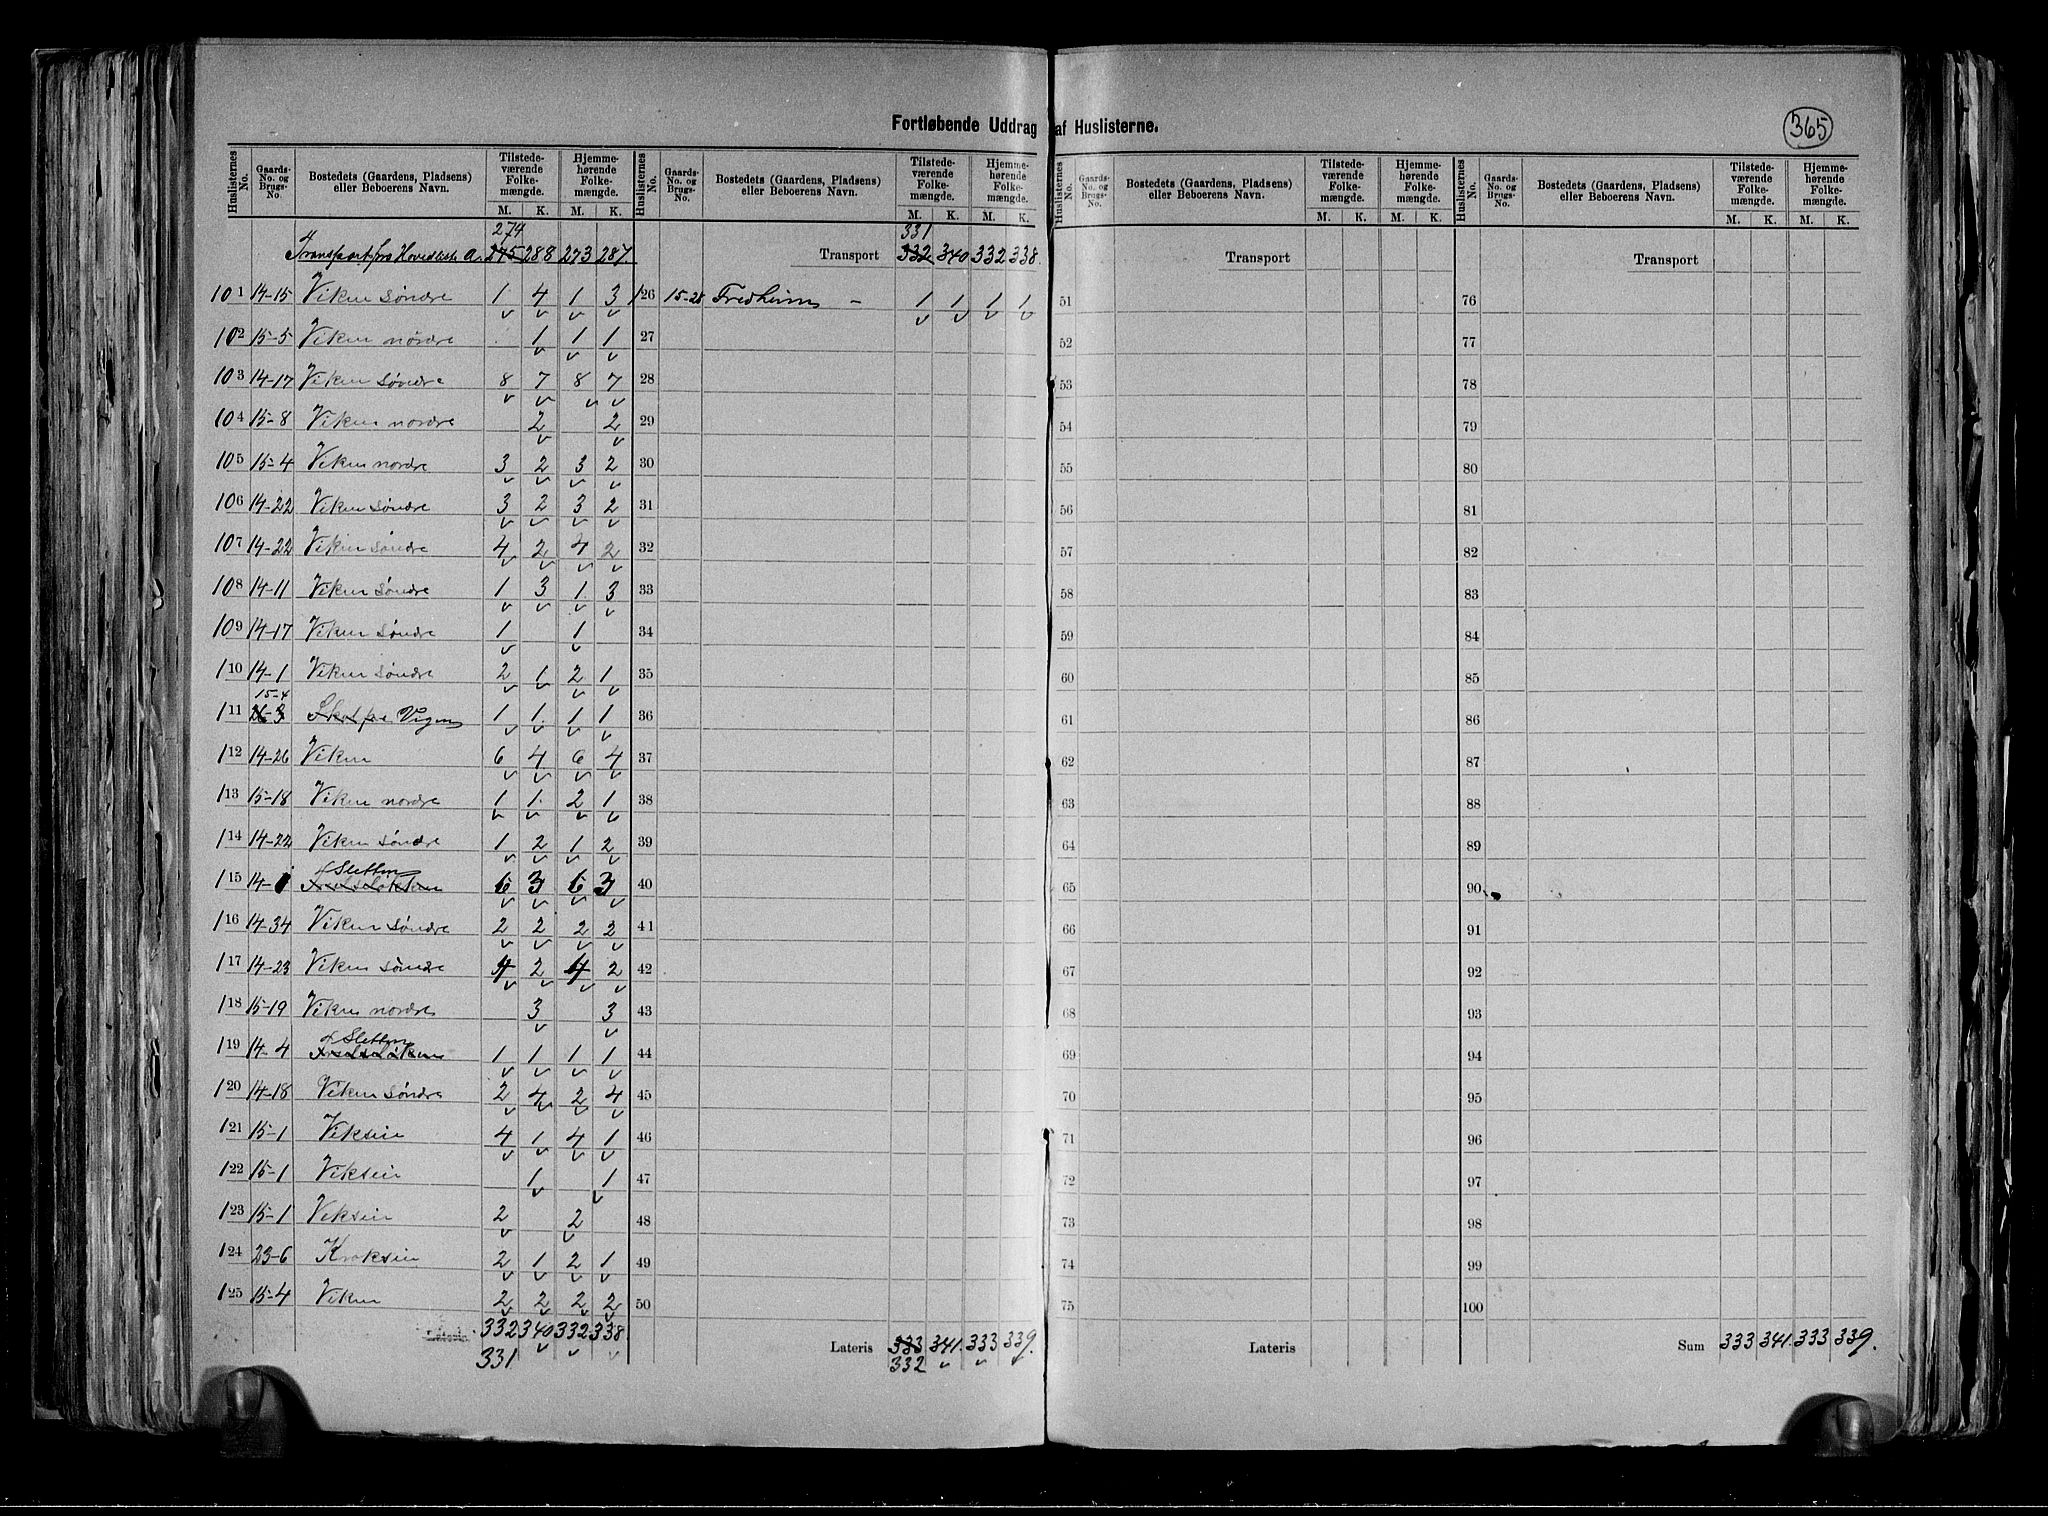 365
Fortløbende Uddrag af Huslisterne.
Huslisternes No. Gaards-No. og Brugs-No. Bostedets (Gaardens, Pladsens) eller Beboerens Navn. Tilstedeværende Folkemængde. M. K. Hjemmehørende Folkemængde. M. K.
Huslisternes No. Gaards-No. og Brugs-No. Bostedets (Gaardens, Pladsens) eller Beboerens Navn. Tilstedeværende Folkemængde. M. K. Hjemmehørende Folkemængde. M. K.
Huslisternes No. Gaards-No. og Brugs-No. Bostedets (Gaardens, Pladsens) eller Beboerens Navn. Tilstedeværende Folkemængde. M. K. Hjemmehørende Folkemængde. M. K.
Huslisternes No. Gaards-No. og Brugs-No. Bostedets (Gaardens, Pladsens) eller Beboerens Navn. Tilstedeværende Folkemængde. M. K. Hjemmehørende Folkemængde. M. K.
274
Transport fra Hovedliste A. 275 288 273 287.
101 14-15 Viken søndre 1 4 1 3
102 15-5 Viken nordre 1 1 1
103 14-17 Viken søndre 8 7 8 7
104 15-8 Viken nordre 2 2
105 15-4 Viken nordre 3 2 3 2
106 14-22 Viken søndre 3 2 3 2
107 14-22 Viken søndre 4 2 4 2
108 14-11 Viken søndre 1 3 1 3
109 14-17 Viken søndre 1 1
110 14-1 Viken søndre 2 1 2 1
15-4
111 Vigen 1 1 1 1
112 14-26 Viken 6 4 6 4
113 15-18 Viken nordre 1 1 2 1
114 14-22 Viken søndre 1 2 1 2
Sletten
115 14- 6 3 6 3
116 14-34 Viken søndre 2 2 2 2
117 14-23 Viken søndre 4 2 4 2
118 15-19 Viken nordre 3 3
Sletten
119 14-4 1 1 1 1
120 14-18 Viken søndre 2 4 2 4
121 15-1 Viksein 4 1 4 1
122 15-1 Viksein 1 1
123 15-1 Viksein 2 2
124 23-6 Kroksein 2 1 2 1
125 15-4 Viken 2 2 2 2
Lateris 332 340 332 338.
331
331
Transport 332 340 332 338.
126 15-28 Fredheim - 1 1 1 1
27
28
29
30
31
32
33
34
35
36
37
38
39
40
41
42
43
44
45
46
47
48
49
50
Lateris 333 341. 333 339.
332
Transport
51
52
53
54
55
56
57
58
59
60
61
62
63
64
65
66
67
68
69
70
71
72
73
74
75
Lateris
Transport
76
77
78
79
80
81
82
83
84
85
86
87
88
89
90
91
92
93
94
95
96
97
98
99
100
Sum 333 341. 333 339.